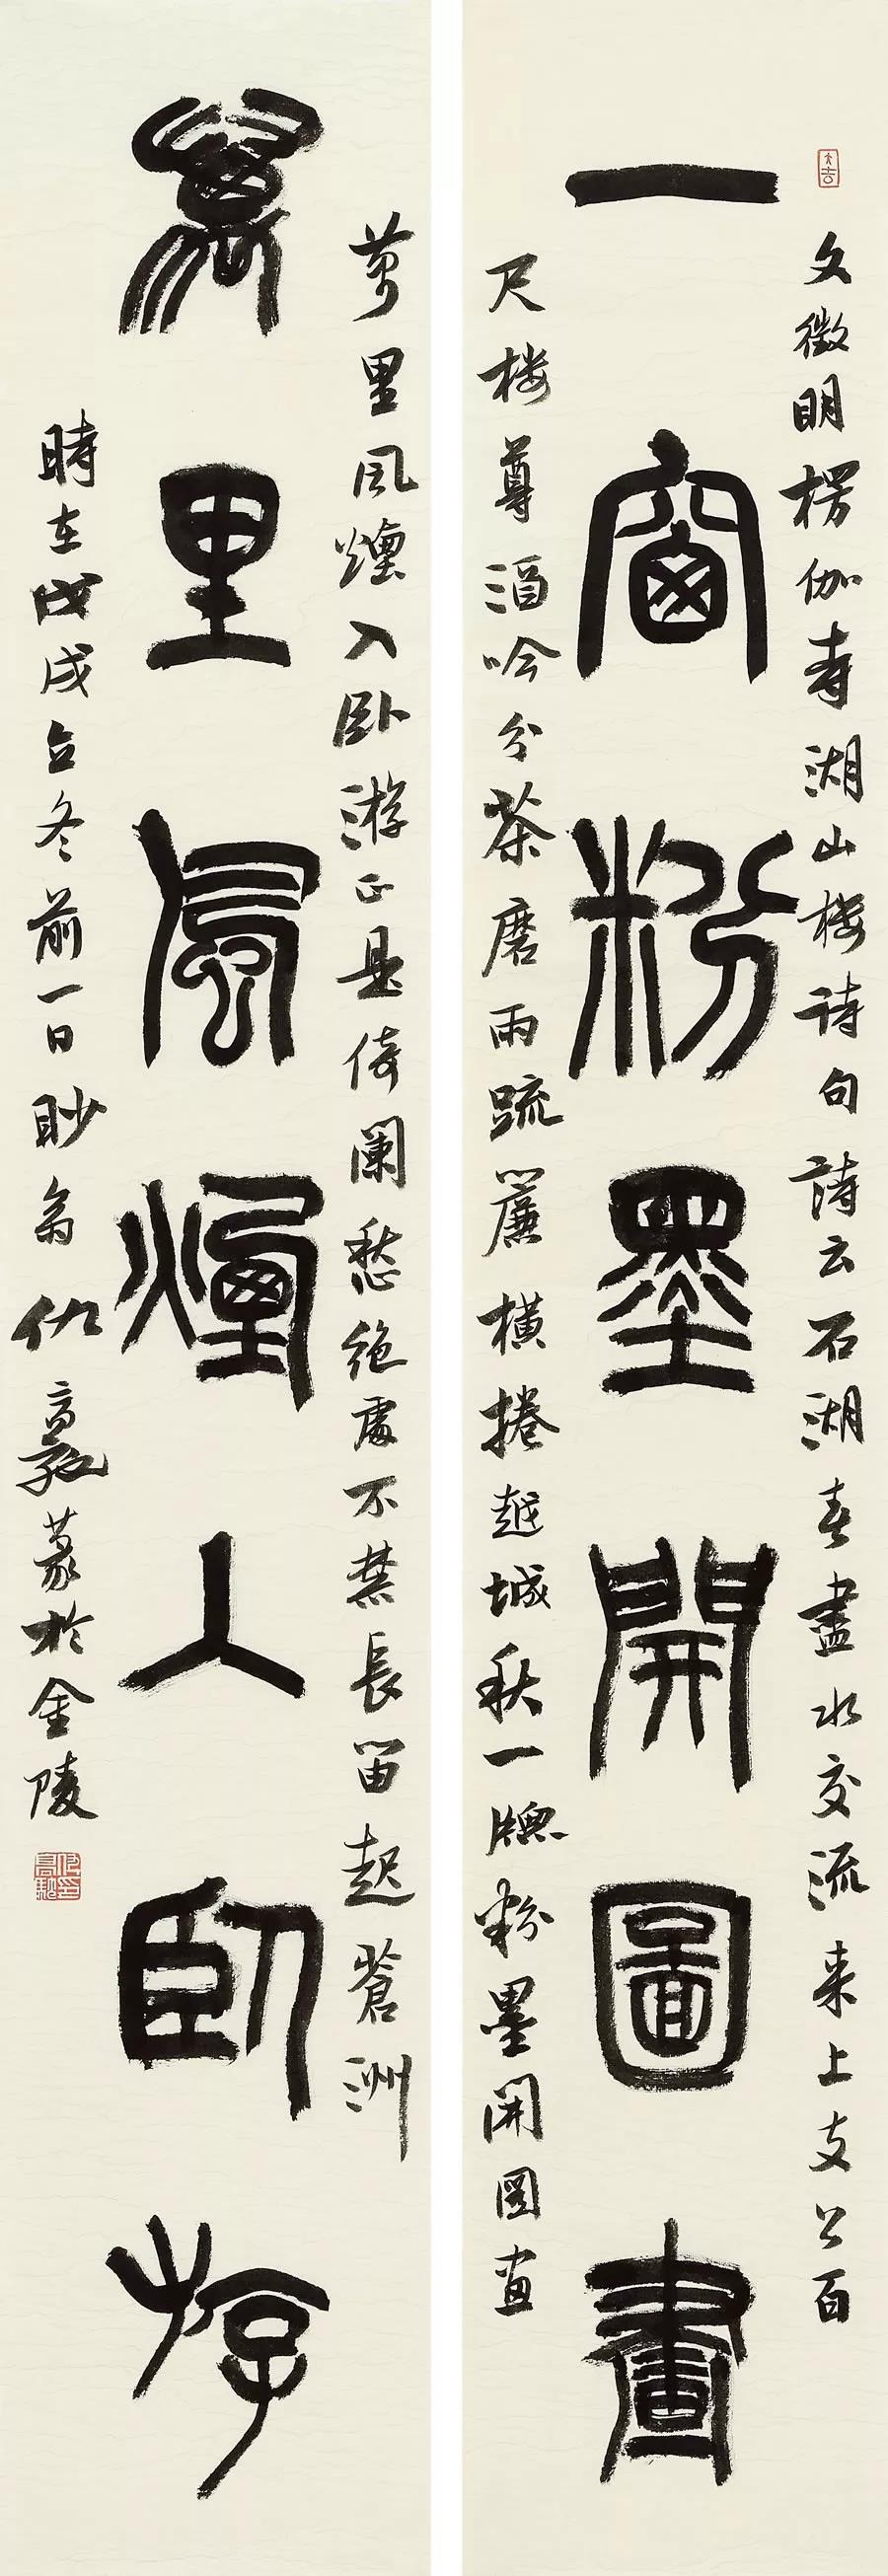 大吉
文徵明楞伽寺湖山楼诗句詩云石湖春盡水交流来上支公百
一窗粉墨開圖畫
尺楼尊酒吟分茶磨雨踈簾横捲越城秋一牕粉墨開图画
萬里風煙入卧游正是倚闌愁绝處不禁長笛起蒼洲
萬里風煙入卧游
時在戊戌立冬前一日眇翁仇高驰篆於金陵